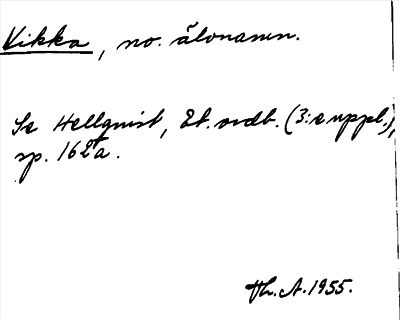 Vikka, no. älvnamn.
Se Hellquist, Et. ordb. (3:e uppl.),
sp. 162a.
Th.A.1955.